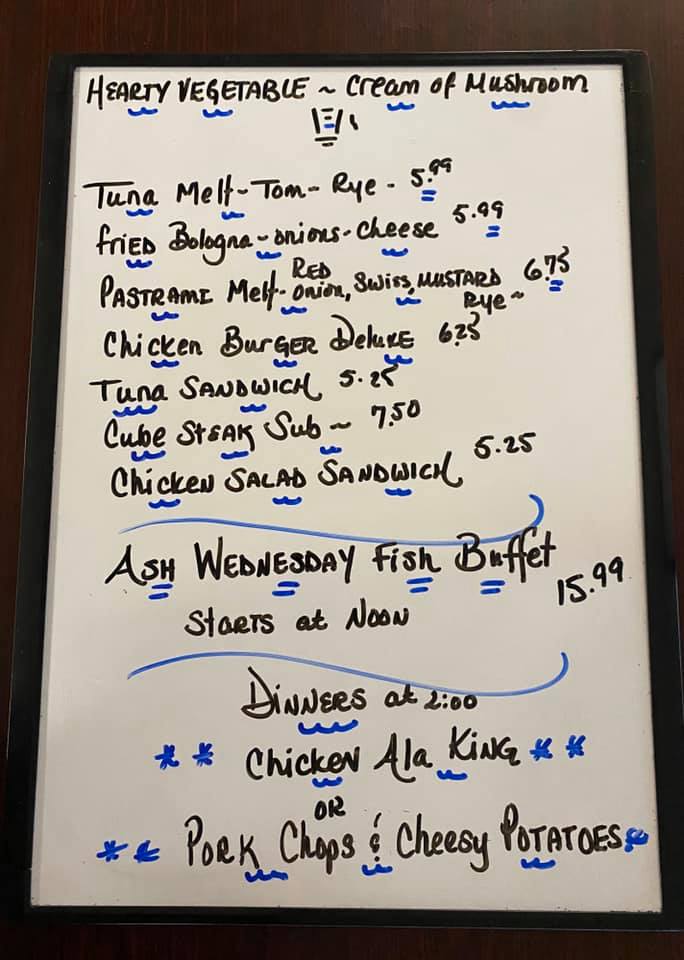 HEARTY VEGETABLE ~ Cream of Mushroom
Tuna Melt - Tom - Rye - 5.99
fried Bologna - onions - cheese 5.99
PASTRAMI Melt - RED Onion, Swiss, MUSTARD Rye ~ 6.75
Chicken BurGER Deluxe 6.25
Tuna SANDWICH 5.25
Cube STEAK Sub ~ 7.50
Chicken SALAD SANDWICH 5.25
ASH WEDNESDAY Fish Buffet 15.99
Starts at Noon
DINNERS at 2:00
** Chicken Ala KING **
OR
** PORK Chops & Cheesy POTATOES *